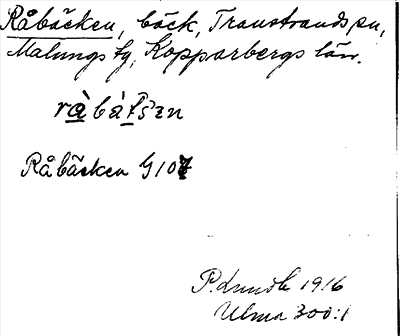 Råbäcken, bäck, Transtrands sn,
Malungs tg, Kopparbergs län.
Råbäcken G 107
1916
Ulma 300:1